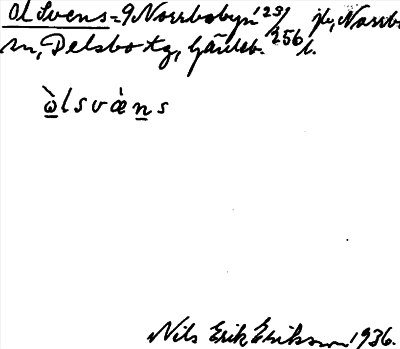 Ol Svens = 9 Norrbobyn 123/256 jb, Norrbo
sn, Delsbo tg, Gävleb. l.
ὼlsvæ̀ns
Nils Erik Eriksson 1936.